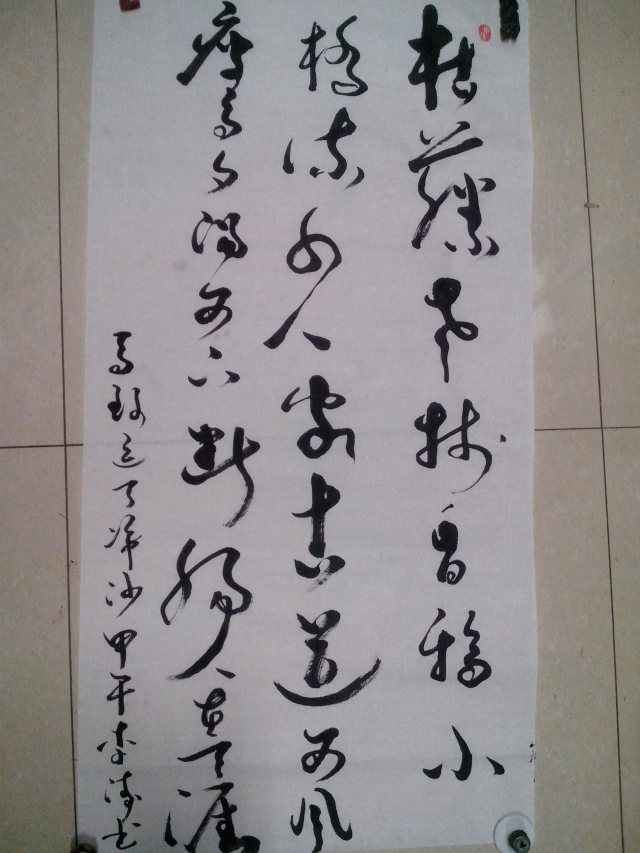 枯藤老树昏鸦小
桥流水人家古道西风
瘦马夕阳西下断肠人在天涯
马致远天净沙甲午李书